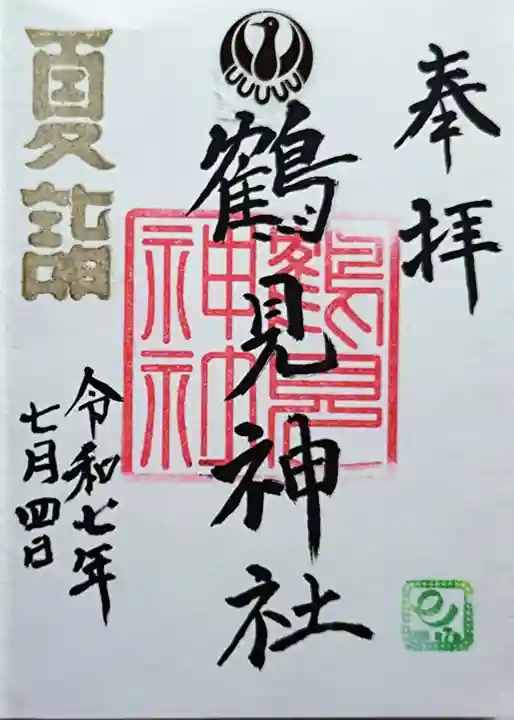 奉拝
鶴見神社
鶴見
神社
夏詣
令和七年
七月四日